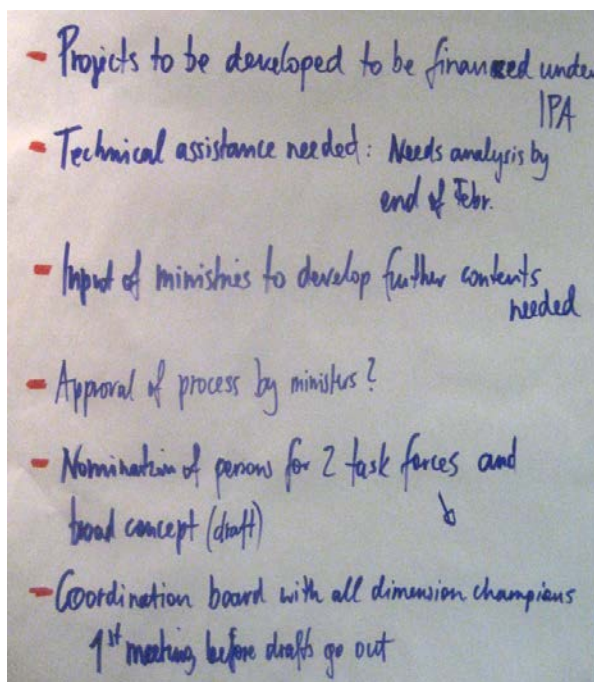 - Projects to be developed to be financed under
IPA
- Technical assistance needed: Needs analysis by
end of Febr.
- Input of ministries to develop further contents
needed
- Approval of process by ministers?
- Nomination of persons for 2 task forces and
broad concept (draft)
- Coordination board with all dimension champions
1st meeting before drafts go out